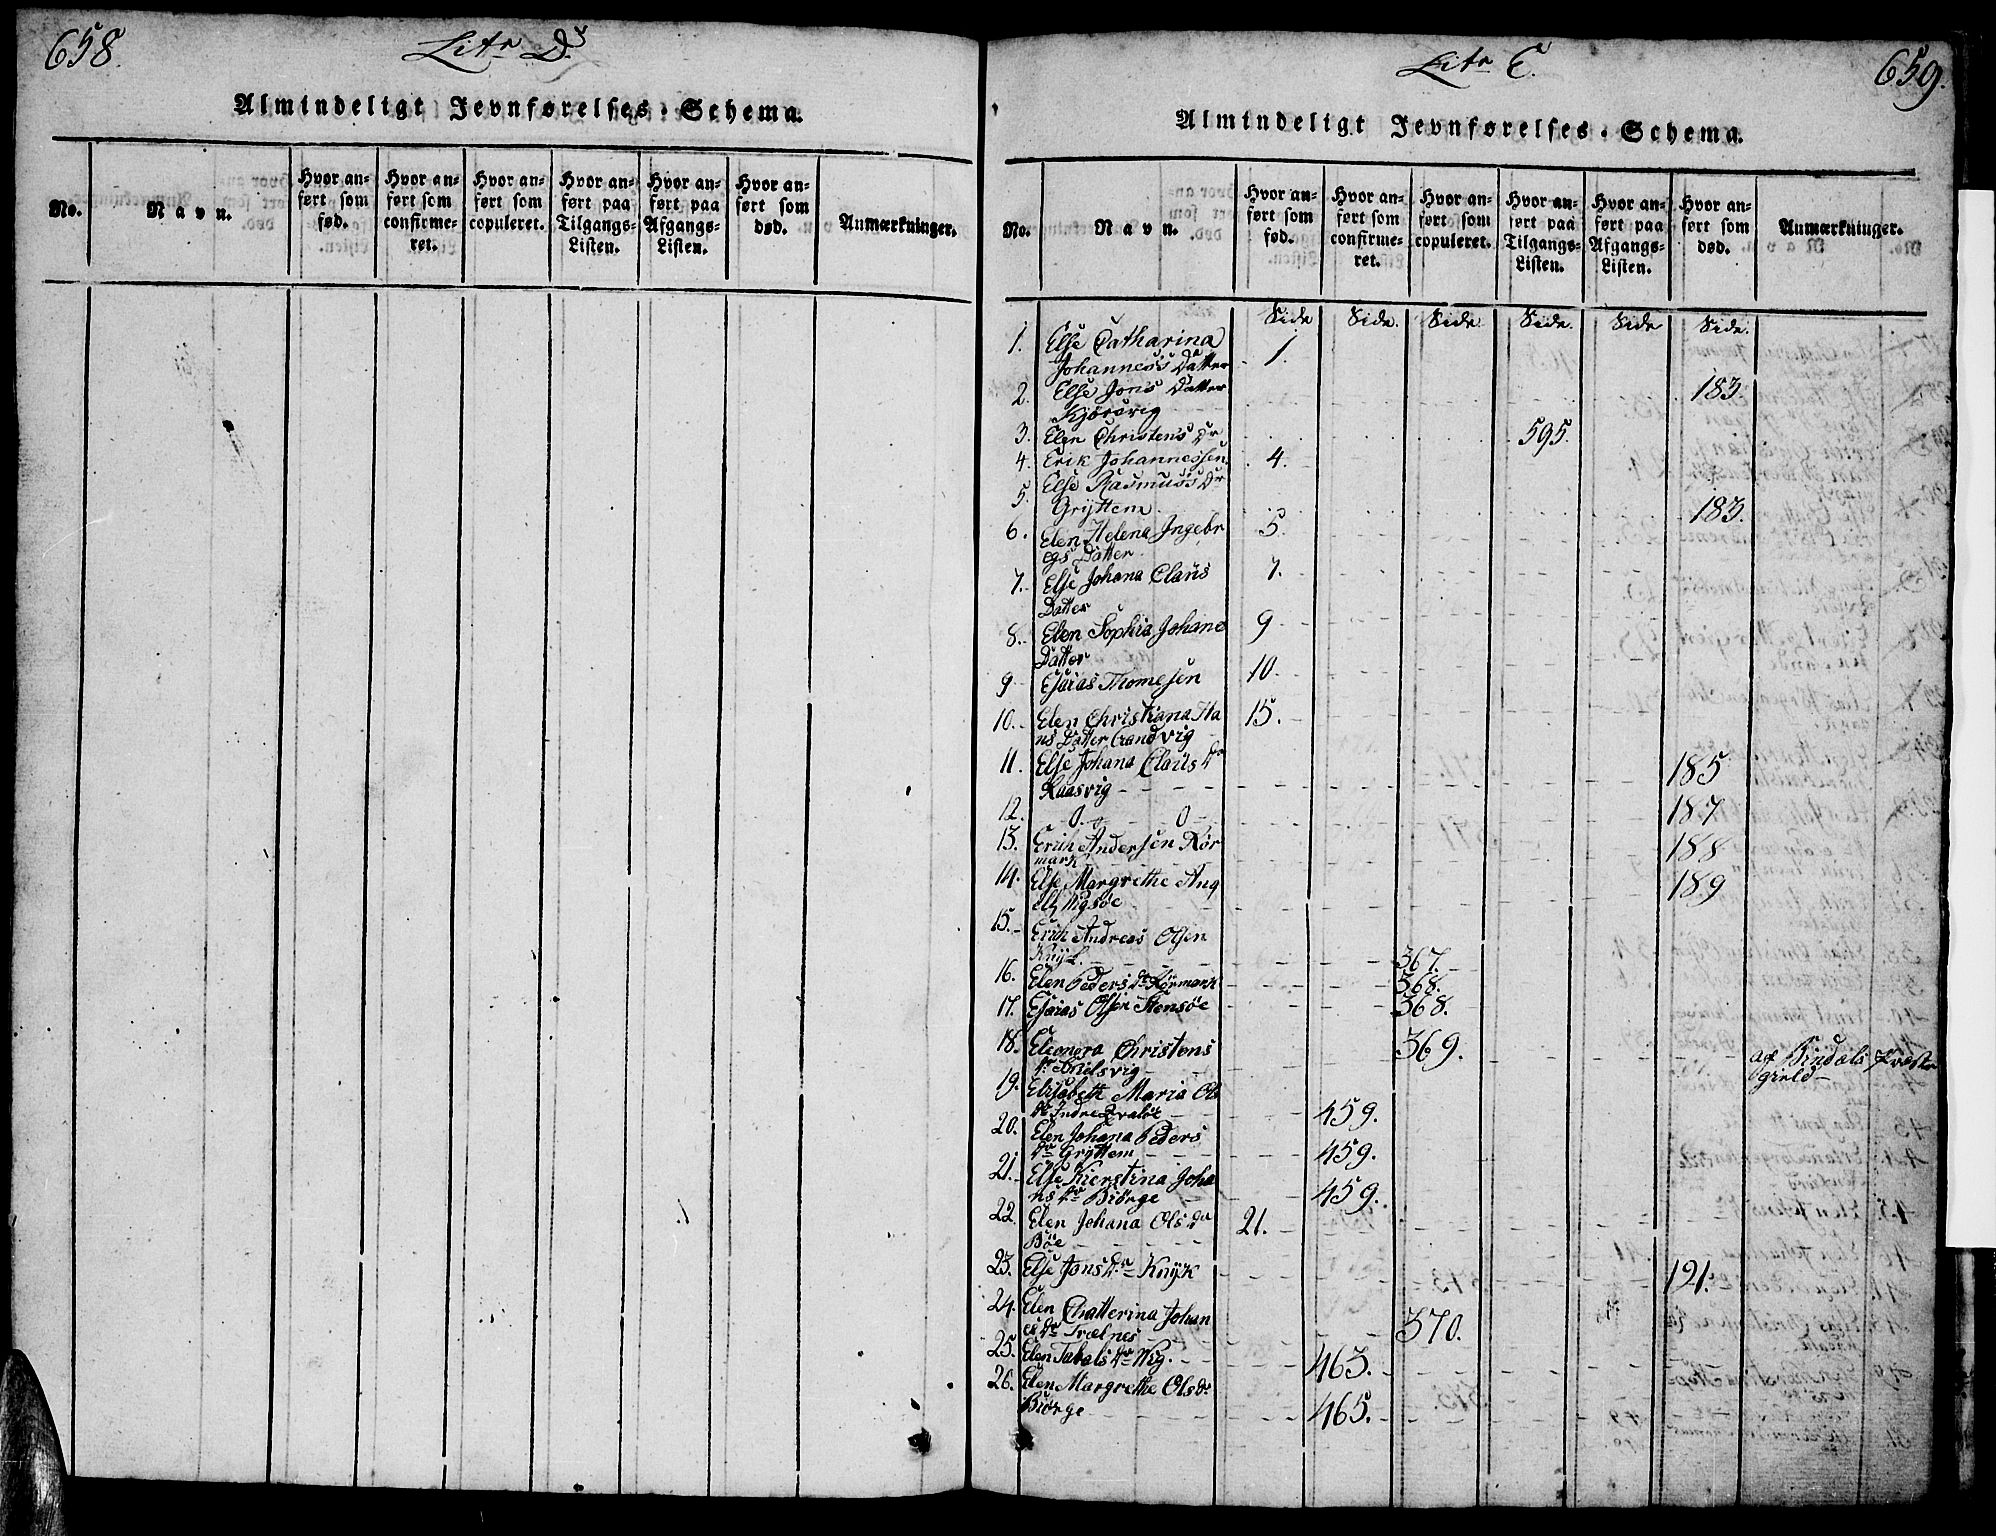 658.
Litr D.
Almindeligt Jevnførelses-Schema.
No.
Navn.
Hvor an-
ført som
fød.
Hvor an-
ført som
confirme-
ret.
Hvor an-
ført som
copuleret.
Hvor an-
ført paa
Tilgangs-
Listen.
Hvor an-
ført paa
Afgangs-
Listen.
Hvor an-
ført som
død.
Anmærkninger.
Litr E.
659.
Almindeligt Jevnførelses-Schema.
No.
Navn.
Hvor an-
ført som
fød.
Hvor an-
ført som
confirme-
ret.
Hvor an-
ført som
copuleret.
Hvor an-
ført paa
Tilgangs-
Listen.
Hvor an-
ført paa
Afgangs-
Listen.
Hvor an-
ført som
død.
Anmærkninger.
Side Side. Side. Side. Side Side.
1. Else Catharina
Johannes's Datter 1.
2. Else Jons Datter 183.
Kjørsvig
3. Elen Christens Dr 595.
4. Erik Johannessen 4.
5. Else Rasmus's Dr
Gryttem 183.
6. Elen Helena Ingebr 5.
egs Datter
7. Else Johana Claus 7.
Datter
8. Elen Sophia Johane 9
Datter
9 Esaias Thomesen 10.
10. Elen Christiana Ha 15.
ns Datter Grandvig
11. Else Johana Claus Dr 185
Kaasvig
12. 0. 0 187
13. Erich Andersen Kør 188
mark
14. Else Margrethe Ang 189
els Vigsøe
15. Erich Andreas Olsen
Knÿk 367.
16. Elen Peders Dr Kørmark 368.
17. Esaias Olsen Stensøe 368.
18. Eleonora Christens 369. af Bindals Præste
Dr Skielsvig gield
19. Elisabeth Maria Ols
Dr Indre Qvaløe 459.
20. Elen Johana Peders
Dr Gryttem 459.
21. Else Kierstina Joha
ns Dr Biørge 459.
22. Elen Johana Ols Dr 21.
Bøe
23. Else Jons Dr Knÿk 191.
24. Elen Chatterina Johan
es Dr Trælnes 370.
25. Elen Tabals Dr Wig. 463.
26. Elen Margrethe Ols Dr
Biørge 465.